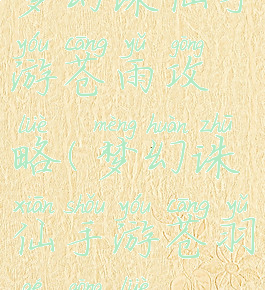 梦幻诛仙手
yóu cāng yǔ gōng
游苍雨攻
lüè mèng huàn zhū
略(梦幻诛
xiān shǒu yóu cāng yǔ
仙手游苍羽